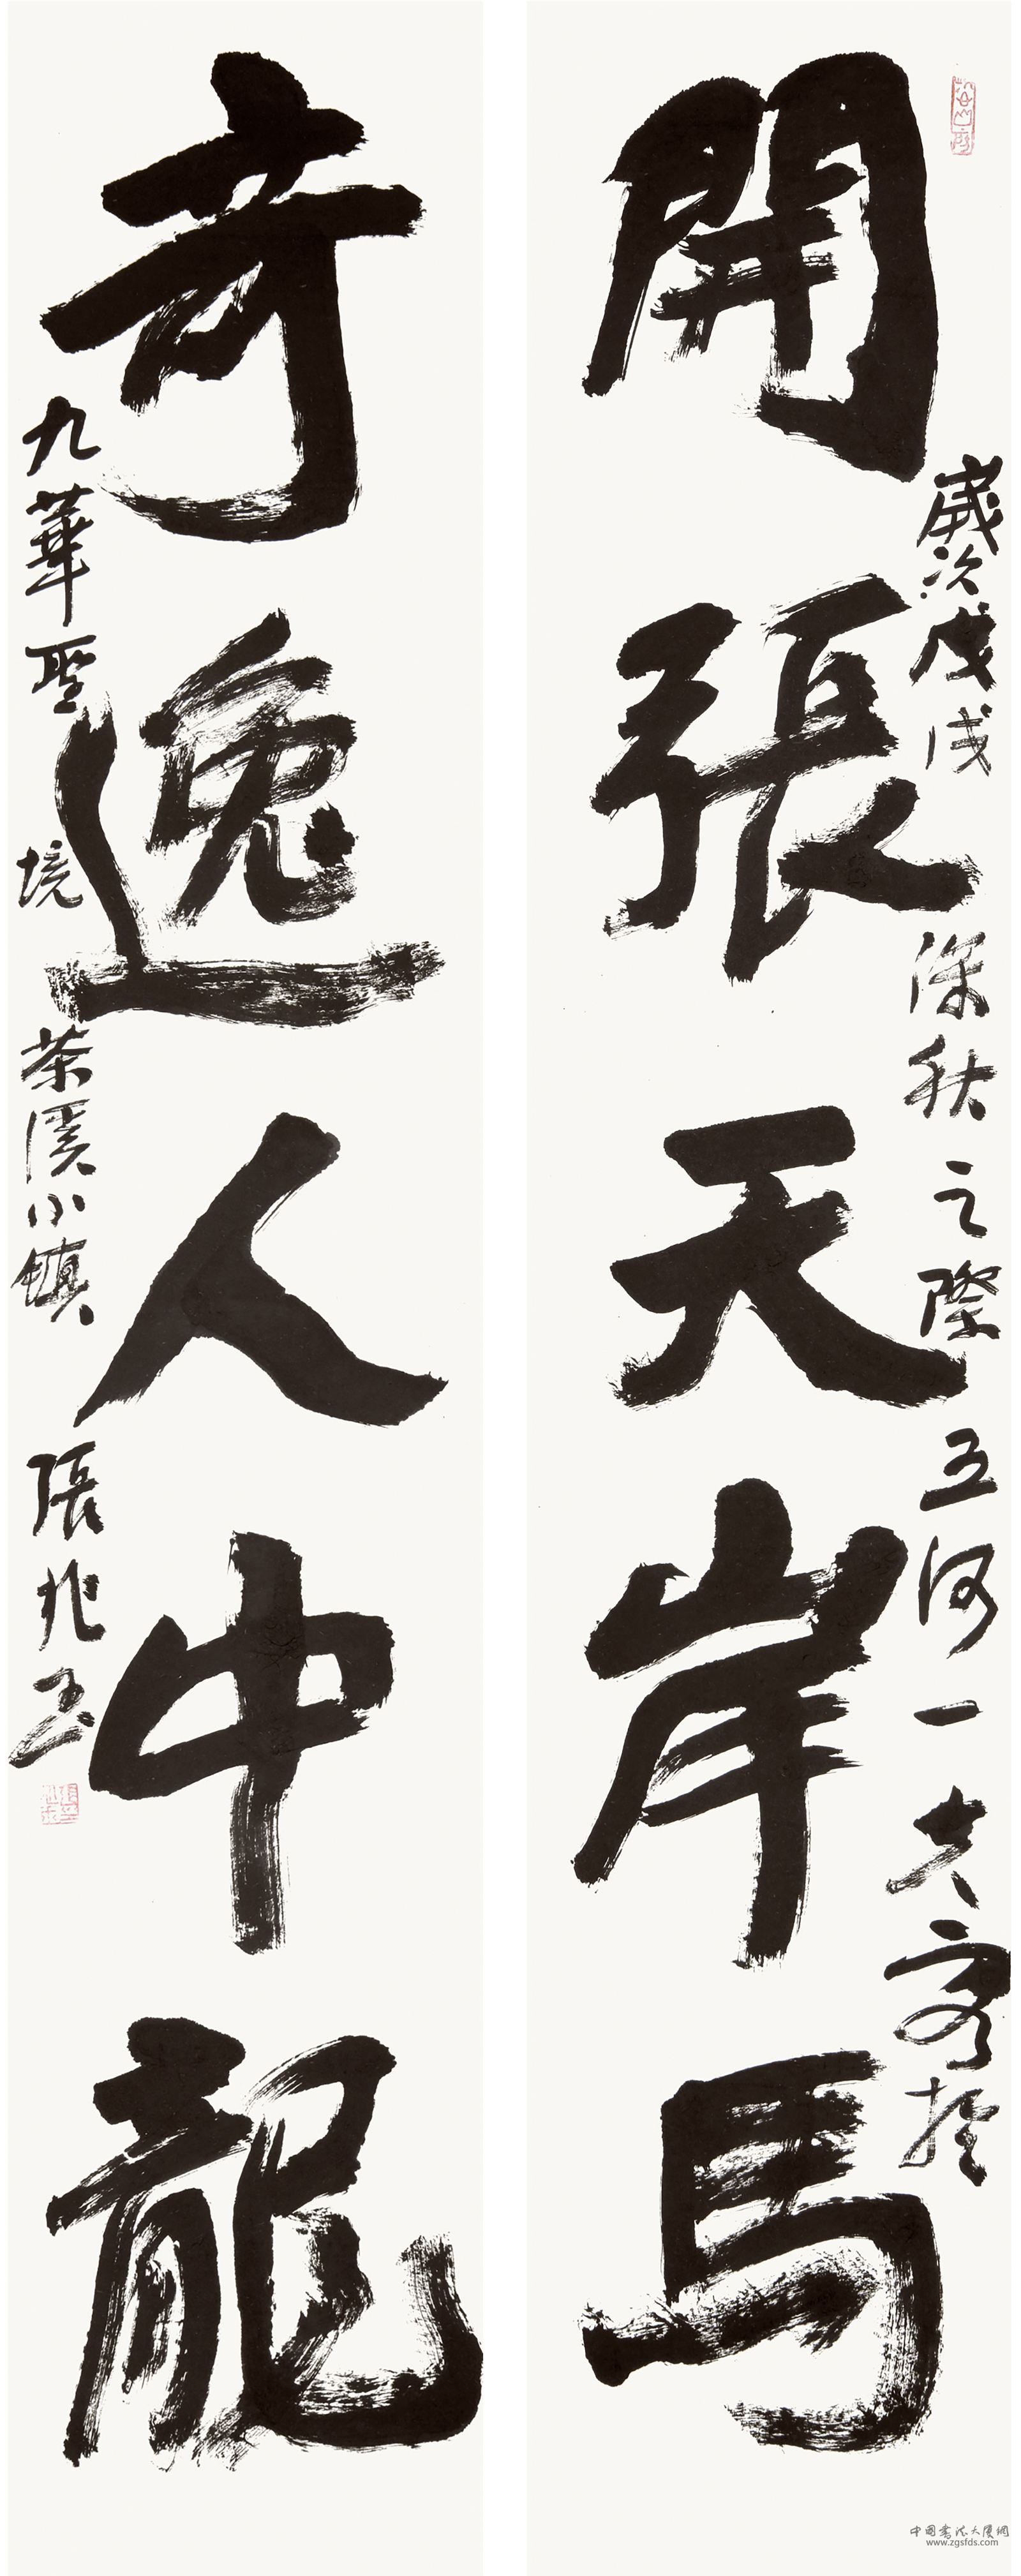 開張天岸馬
歲次戊戌深秋之際五河一大客於
奇逸人中龍
九華聖境茶溪小鎮張兆玉
中國書法大廈網
www.zgsfds.com